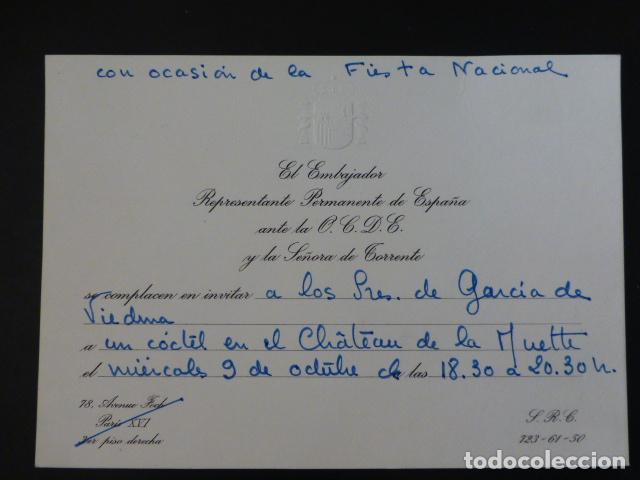 con ocasión de la Fiesta Nacional
El Embajador
Representante Permanente de España
ante la O.C.D.E.
y la Señora de Torrente
se complacen en invitar a los Sres. de García de
Viedma
a un cóctel en el Château de la Muette
el miércoles 9 de octubre de las 18.30 a 20.30 h.
78, Avenue Foch
Paris XVI
1er piso derecha
S.R.C.
723-61-50
todocoleccion.net